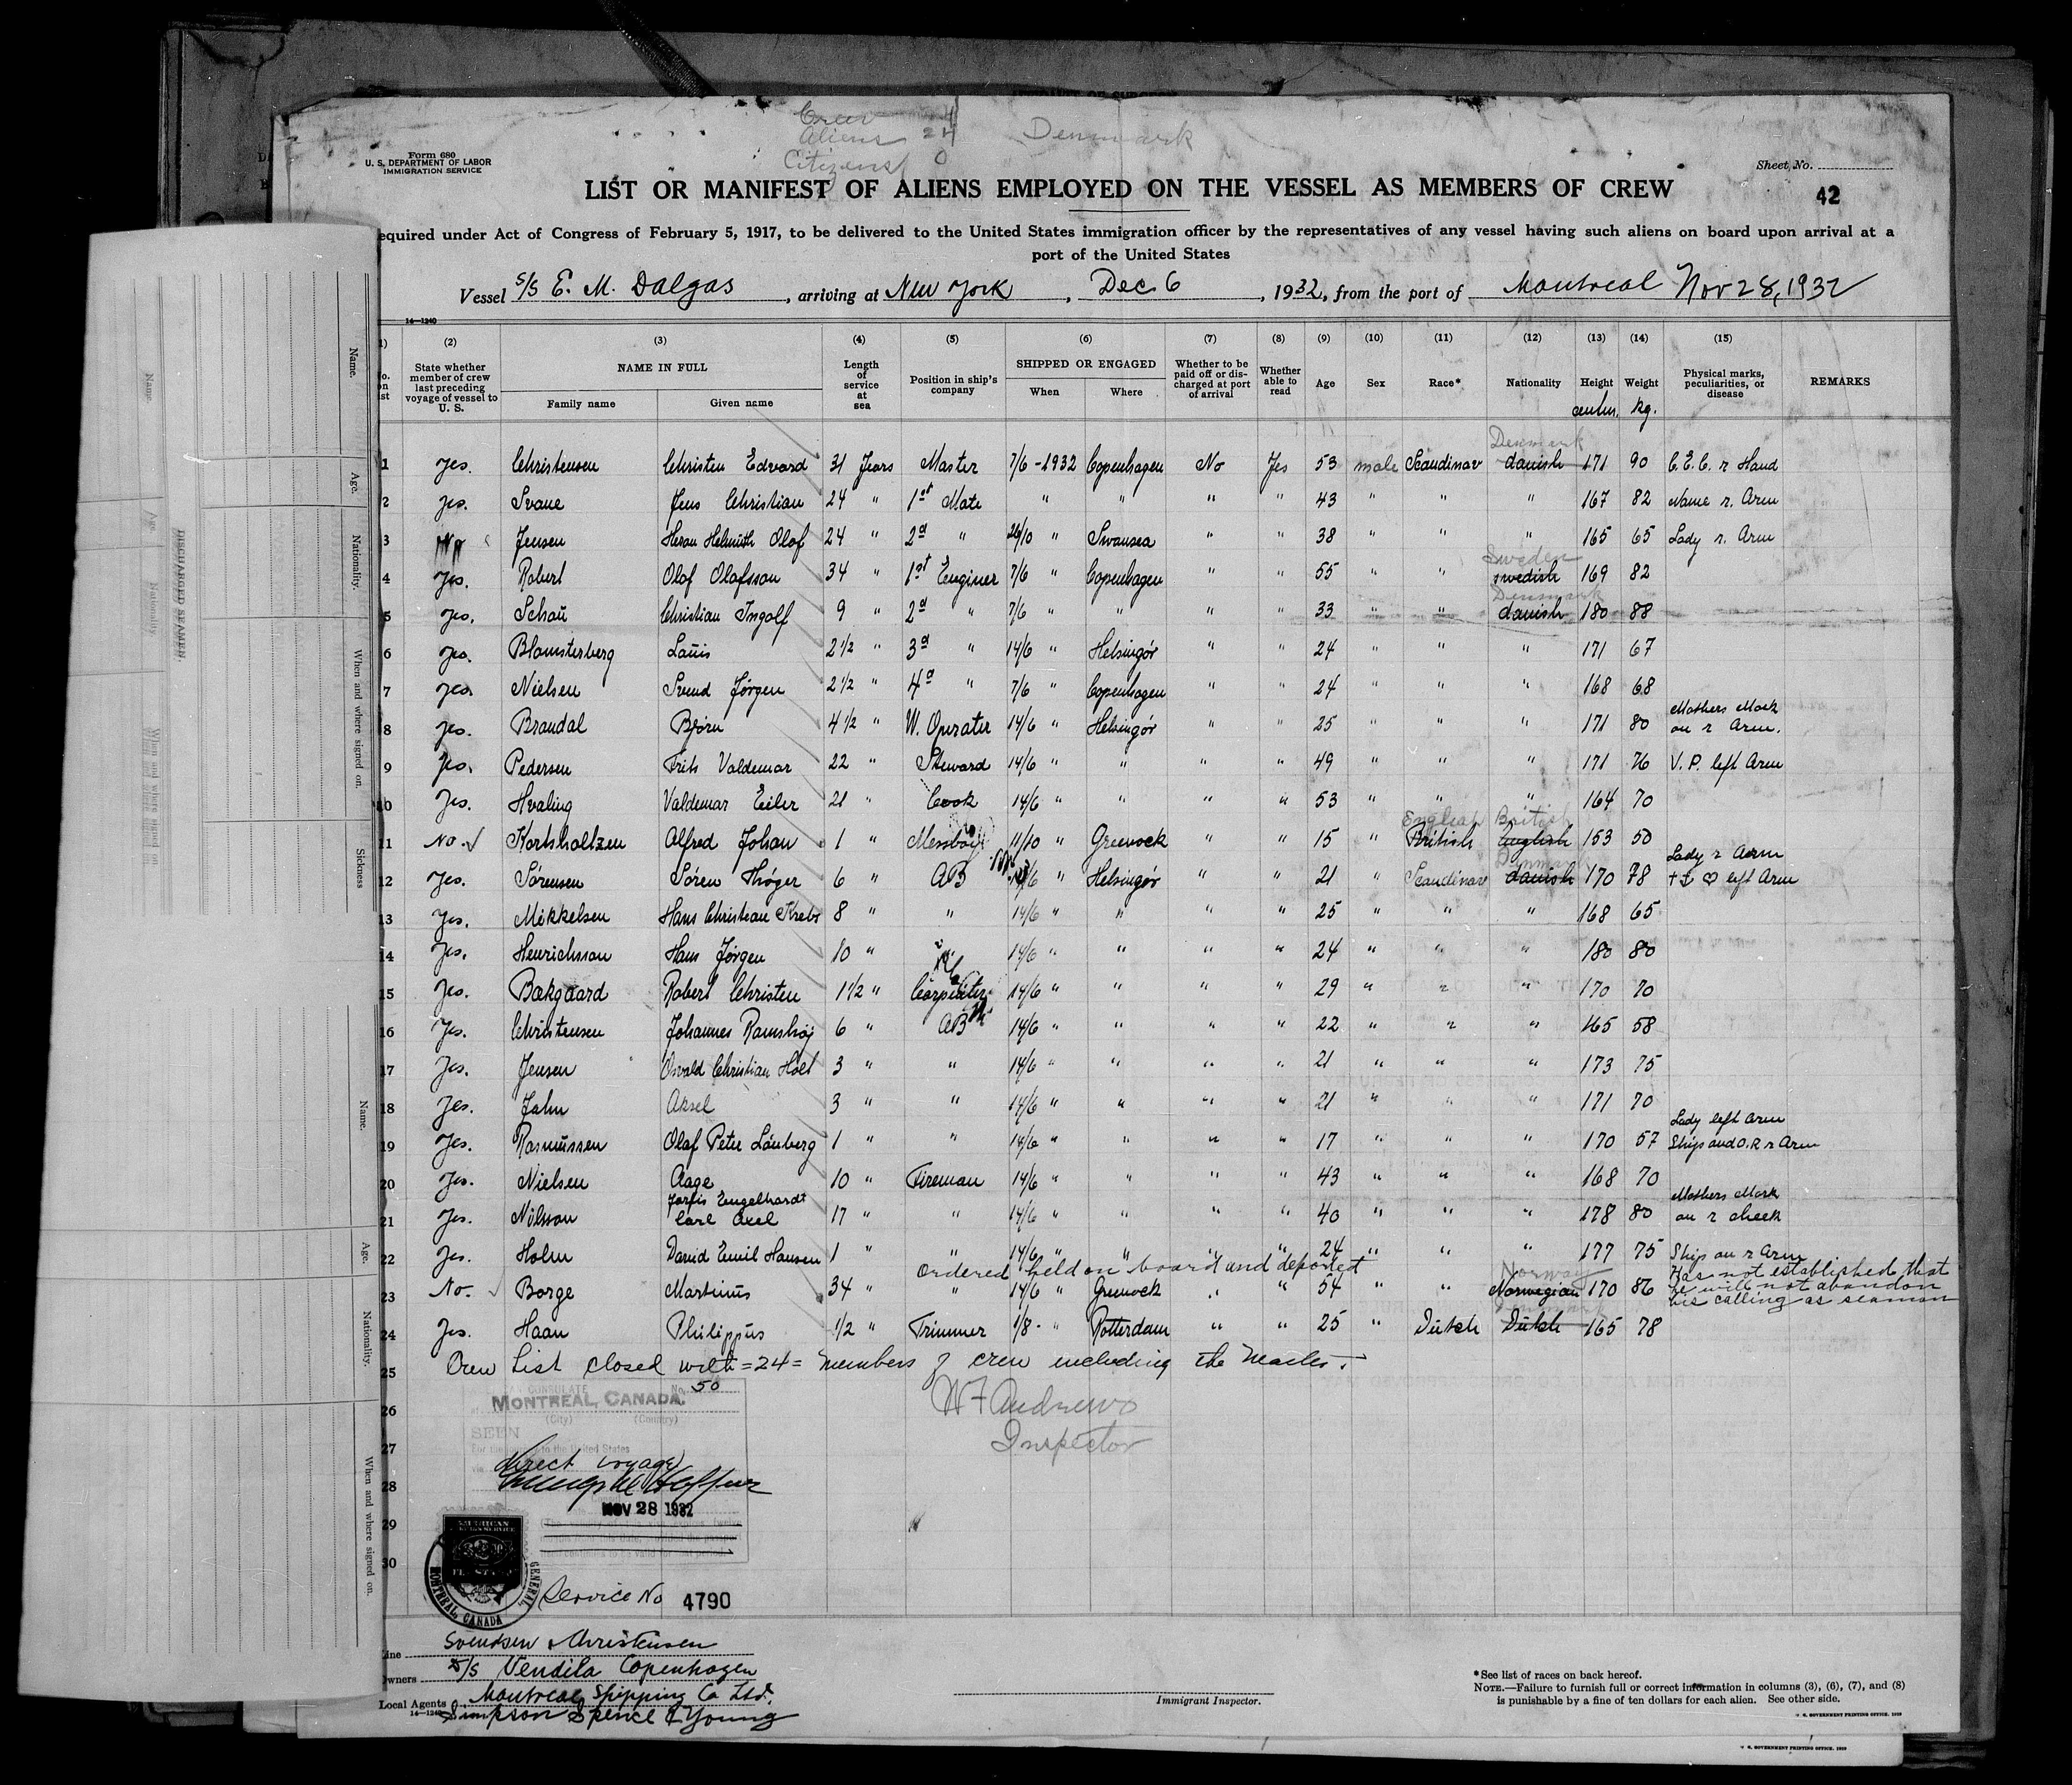 Crew
Aliens 24
Citizens 0
Denmark
Form 680
U. S. DEPARTMENT OF LABOR
IMMIGRATION SERVICE
Sheet No.
42
LIST OR MANIFEST OF ALIENS EMPLOYED ON THE VESSEL AS MEMBERS OF CREW
equired under Act of Congress of February 5, 1917, to be delivered to the United States immigration officer by the representatives of any vessel having such aliens on board upon arrival at a
port of the United States
Vessel S/S E. M. Dalgas, arriving at New York, Dec 6, 1932, from the port of Montreal Nov 28, 1932
14—1240
(2) (3) (4) (5) (6) (7) (8) (9) (10) (11) (12) (13) (14) (15)
State whether member of crew last preceding voyage of vessel to U. S. NAME IN FULL Family name Given name Length of service at sea Position in ship's company SHIPPED OR ENGAGED When Where Whether to be paid off or discharged at port of arrival Whether able to read Age Sex Race* Nationality Height Weight Physical marks, peculiarities, or disease REMARKS
kg.
Denmark
1 Yes. Christensen Christen Edvard 31 Years Master 7/6 - 1932 Copenhagen No Yes 53 male Scandinav danish 171 90 C.E.C. r Hand
2 Yes. Svane Jens Christian 24 " 1st Mate " " " " 43 " " " 167 82 Name r. Arm
3 No Jensen Olaf 24 " 2d " 26/10 " Swansea " " 38 " " " 165 65 Lady r. Arm
Sweden
4 Yes. Robert Olof Olafsson 34 " 1st Enginer 7/6 " Copenhagen " " 55 " " swedish 169 82
Denmark
5 Yes. Schaü Christian Ingolf 9 " 2d " 7/6 " " " " 33 " " danish 180 88
6 Yes. Blomsterberg Laüis 2 1/2 " 3d " 14/6 " Helsingør " " 24 " " " 171 67
7 Yes. Nielsen Svend Jørgen 2 1/2 " 4d " 7/6 " Copenhagen " " 24 " " " 168 68
8 Yes. Brandal Bjørn 4 1/2 " W. Operater 14/6 " Helsingør " " 25 " " " 171 80 Mothers Mark on r Arm.
9 Yes. Pedersen Frits Valdemar 22 " Steward 14/6 " " " " 49 " " " 171 76 V. P. left Arm
10 Yes. Hvaling Valdemar Eiler 21 " Cook 14/6 " " " " 53 " " " 164 70
English British
11 No. Kortsholtzen Alfred Johan 1 " Messboy 11/10 " Greenock " " 15 " British English 153 50
Denmark
12 Yes. Sørensen Sören Thøger 6 " AB 14/6 " Helsingør " " 21 " Scandinav danish 170 78 Lady r Arm †⚓ ♡ left Arm
13 Yes. Mikkelsen Hans Christian Krebs 8 " " 14/6 " " " " 25 " " " 168 65
14 Yes. Henrichsson Hans Jørgen 10 " " 14/6 " " " " 24 " " " 180 80
15 Yes. Bakgaard Robert Christen 1 1/2 " Carpenter 14/6 " " " " 29 " " " 170 70
16 Yes. Christensen Johannes Ramshøj 6 " AB 14/6 " " " " 22 " " " 165 58
17 Yes. Jensen Osvald Christian Holt 3 " " 14/6 " " " " 21 " " " 173 75
18 Yes. Jahn Aksel 3 " " 14/6 " " " " 21 " " " 171 70
19 Yes. Rasmüssen Olaf Peter Lönberg 1 " " 14/6 " " " " 17 " " " 170 57 Lady left Arm Ships and O.R r Arm
20 Yes. Nielsen Aage 10 " Fireman 14/6 " " " " 43 " " " 168 70
21 Yes. Nilsson Engelhardt Carl Axel 17 " " 14/6 " " " " 40 " " " 178 80 Mothers Mark on r cheek
22 Yes. Holm David Emil Hansen 1 " " 14/6 " " " " 24 " " " 177 75 Ship on r Arm
ordered held on board and deported
Norway
23 No. Borge Martiniüs 34 " " 14/6 " Greenock " " 54 " " Norwegian 170 86 Has not established that he will not abandon his calling as seaman
24 Yes. Haan Philippüs 1/2 " Trimmer 1/8 - " Rotterdam " " 25 " Dütch Dütch 165 78
25 Crew List closed with = 24 = members of crew including the Master.
26
27
28
29
30
No. 50
MONTREAL, CANADA.
(City) (Country)
SEEN
For the journey to the United States
direct voyage
NOV 28 1932
W F Andrews
Inspector
AMERICAN
GENERAL
MONTREAL, CANADA
Service No 4790
Line Svendsen & Christensen
Owners D/S Vendila Copenhagen
Local Agents Montreal Shipping Co Ltd.
14—1240 Simpson Spence & Young
Immigrant Inspector.
*See list of races on back hereof.
NOTE.—Failure to furnish full or correct information in columns (3), (6), (7), and (8)
is punishable by a fine of ten dollars for each alien. See other side.
U. S. GOVERNMENT PRINTING OFFICE.
Name.
Age.
Nationality.
When and where signed on.
Sickness
Name.
Age.
Nationality.
When and where signed on.
DISCHARGED SEAMEN.